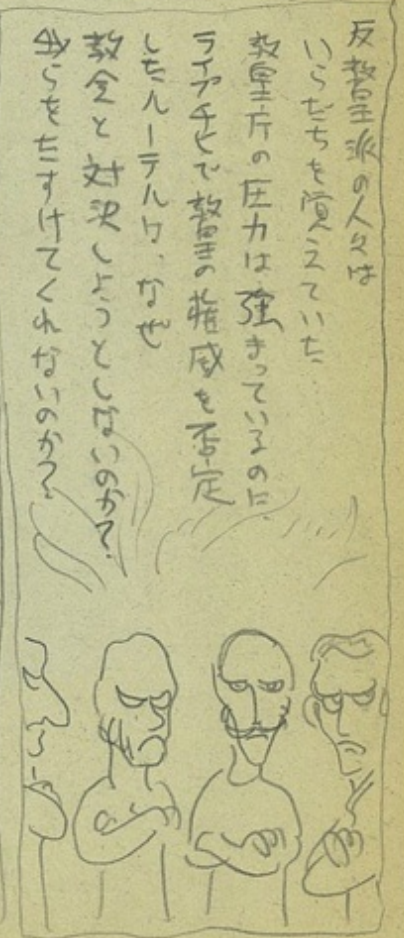 反教皇派の人々は
いらだちを覚えていた
教皇庁の圧力は強まっているのに
ライプチヒで教皇の権威を否定
したルーテルは、なぜ
教会と対決しようとしないのか?
我らをたすけてくれないのか?